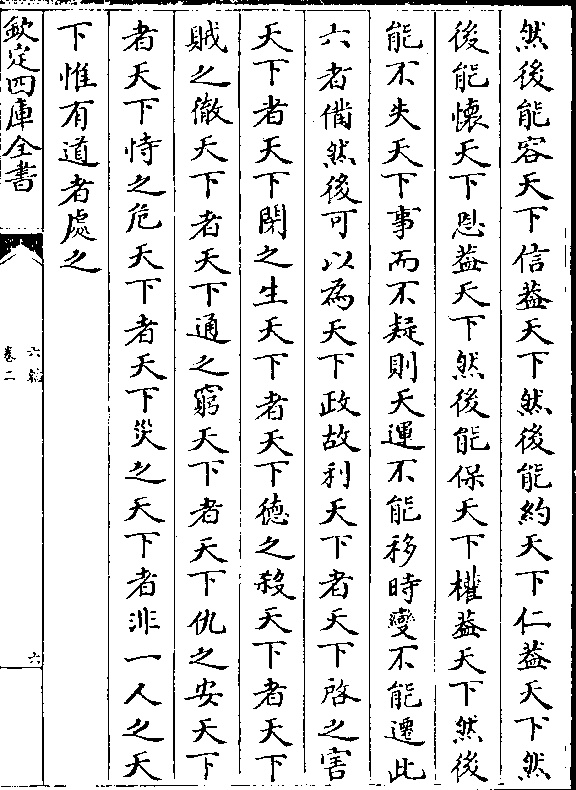 然後能容天下信葢天下然後能約天下仁葢天下然
後能懷天下恩葢天下然後能保天下權葢天下然後
能不失天下事而不疑則天運不能移時變不能遷此
六者備然後可以為天下政故利天下者天下啓之害
天下者天下閉之生天下者天下德之殺天下者天下
賊之徹天下者天下通之窮天下者天下仇之安天下
者天下恃之危天下者天下災之天下者非一人之天
下惟有道者處之
欽定四庫全書
六韜
卷二
六